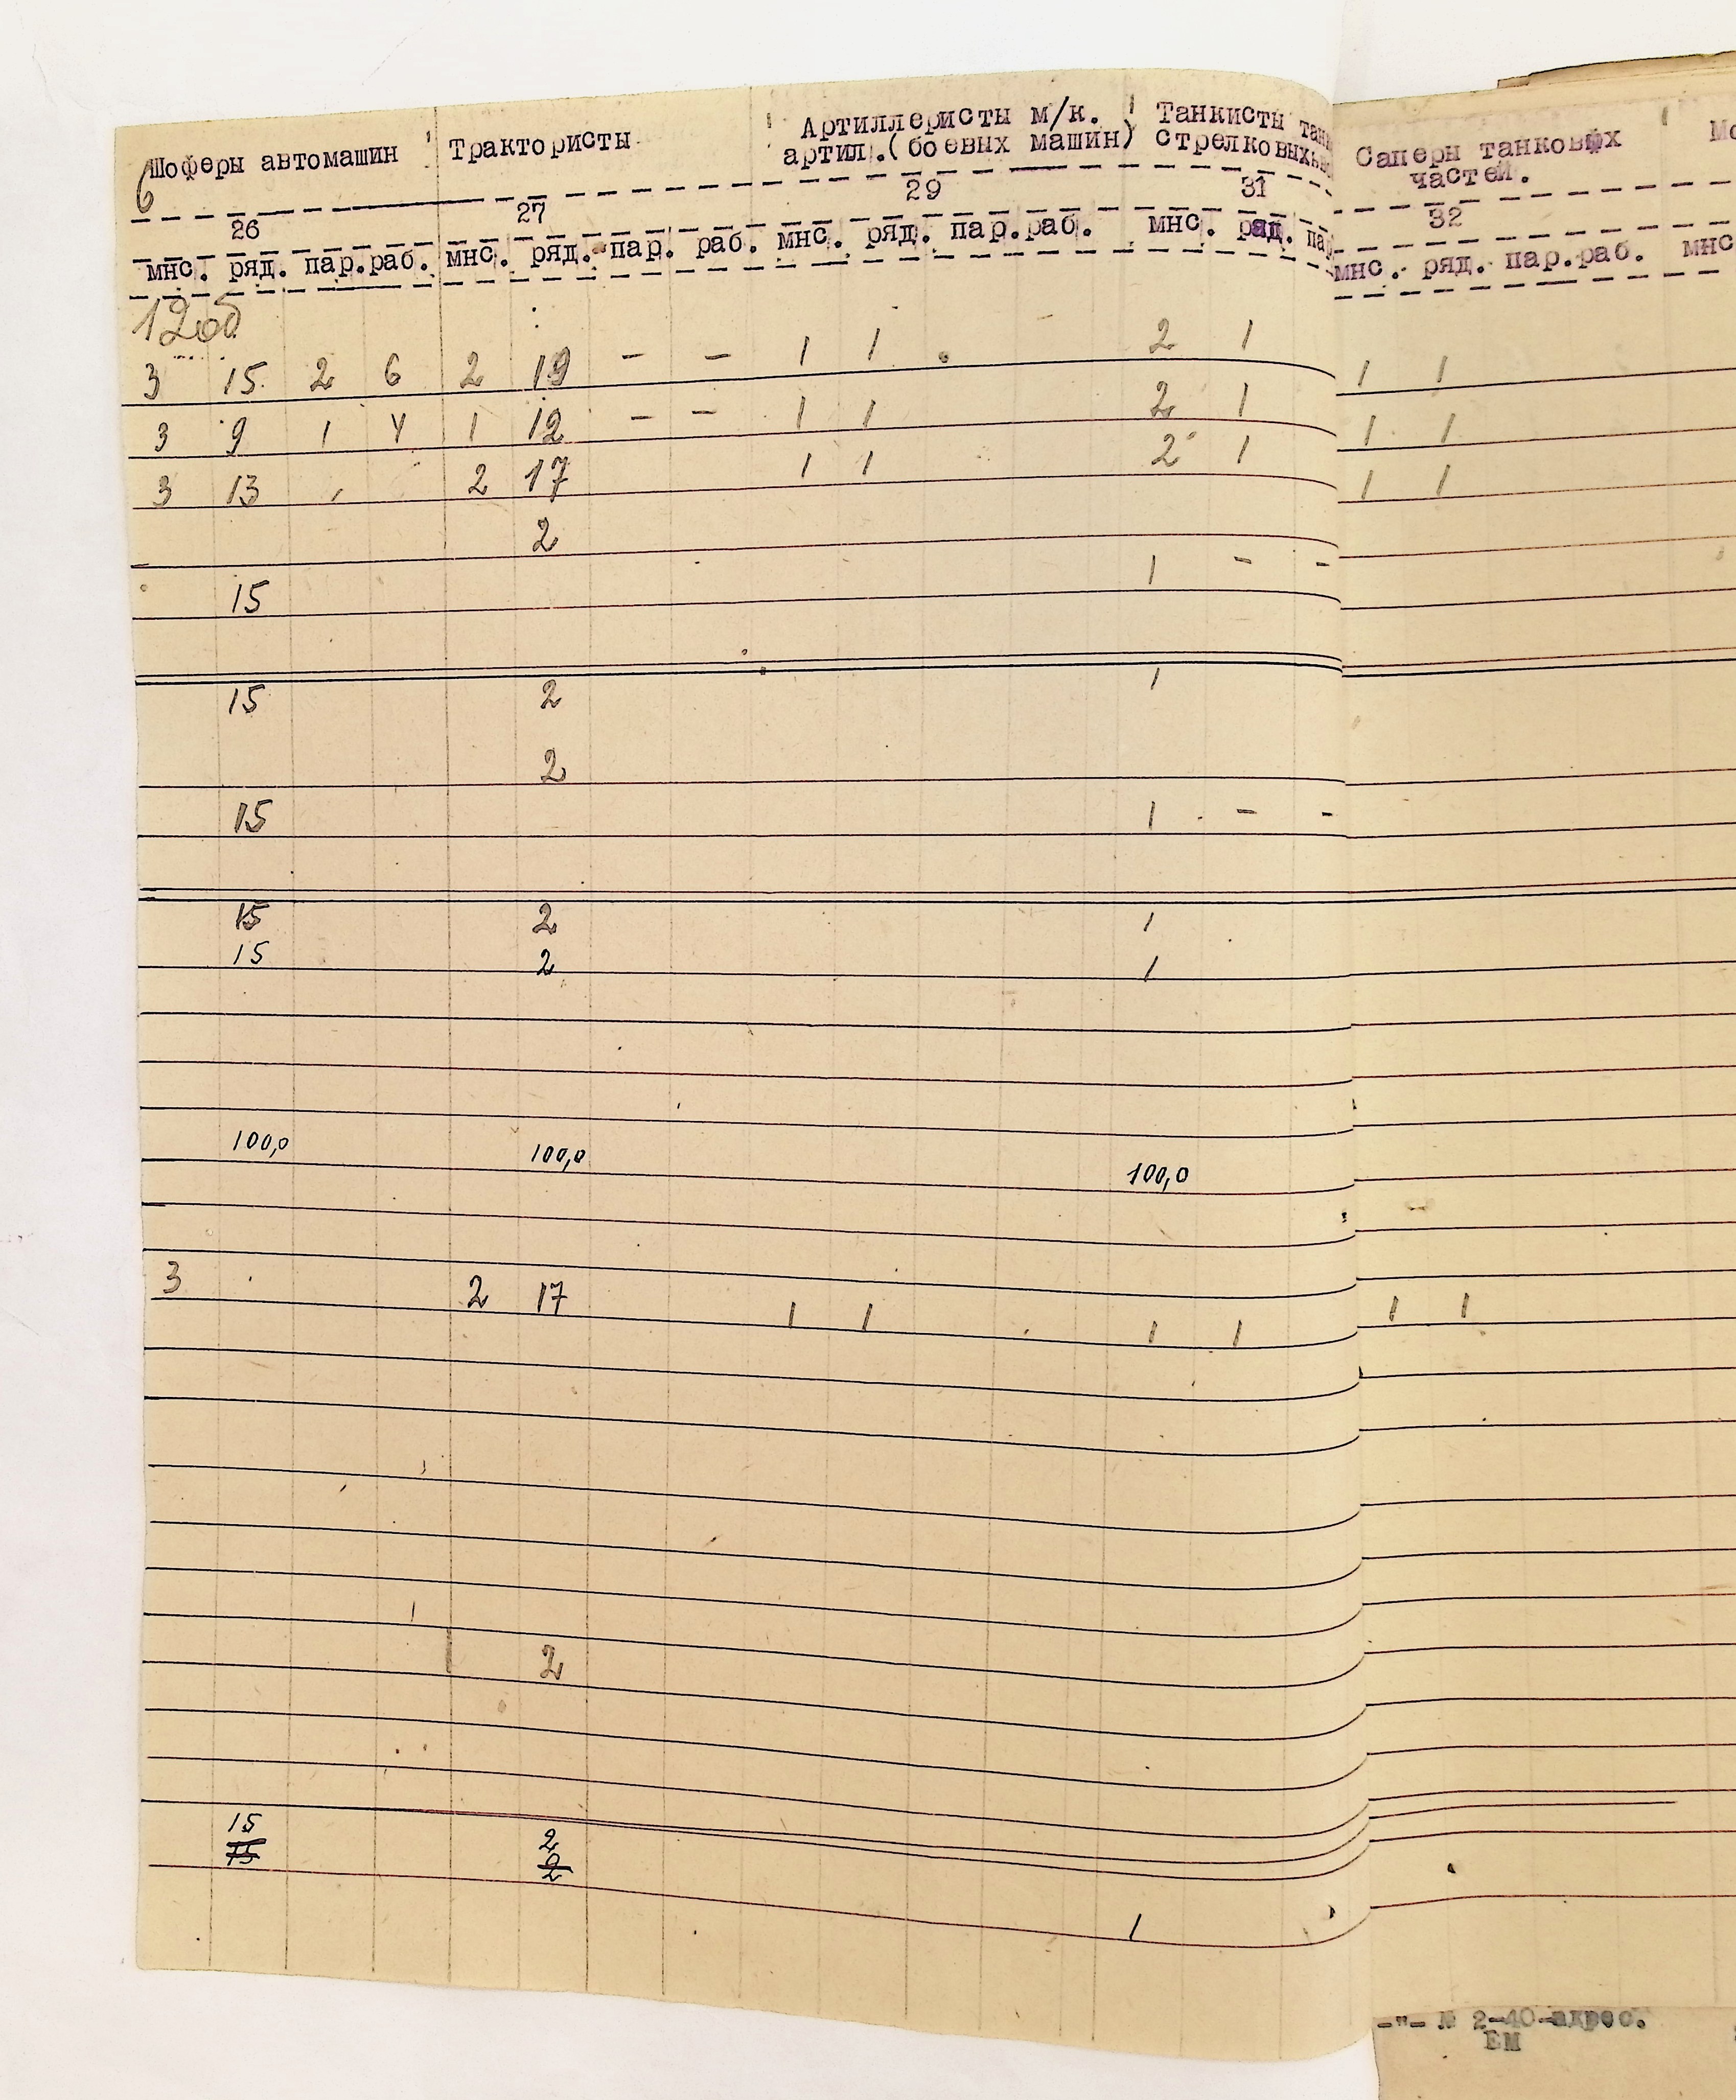 Шоферы автомашин Трактористы Артиллеристы м/к. Танкисты Саперы танковых
артил.(боевых машин) стрелковых частей.
6
26 27 29 31 32
мнс. ряд. пар. раб. мнс. ряд. пар. раб. мнс. ряд. пар. раб. мнс. ряд. мнс. ряд. пар. раб. мнс
12об
3 15 2 6 2 19 - - 1 1 2 1 1 1
3 9 1 4 1 12 - - 1 1 2 1 1 1
3 13 2 17 1 1 2 1 1 1
2
15 1 - -
15 2 1
2
15 1 - -
15 2 1
15 2 1
100,0 100,0 100,0
3 2 17 1 1 1 1 1 1
2
15 2
15 2
1
-"- № 2-40-адрес.
ВМ